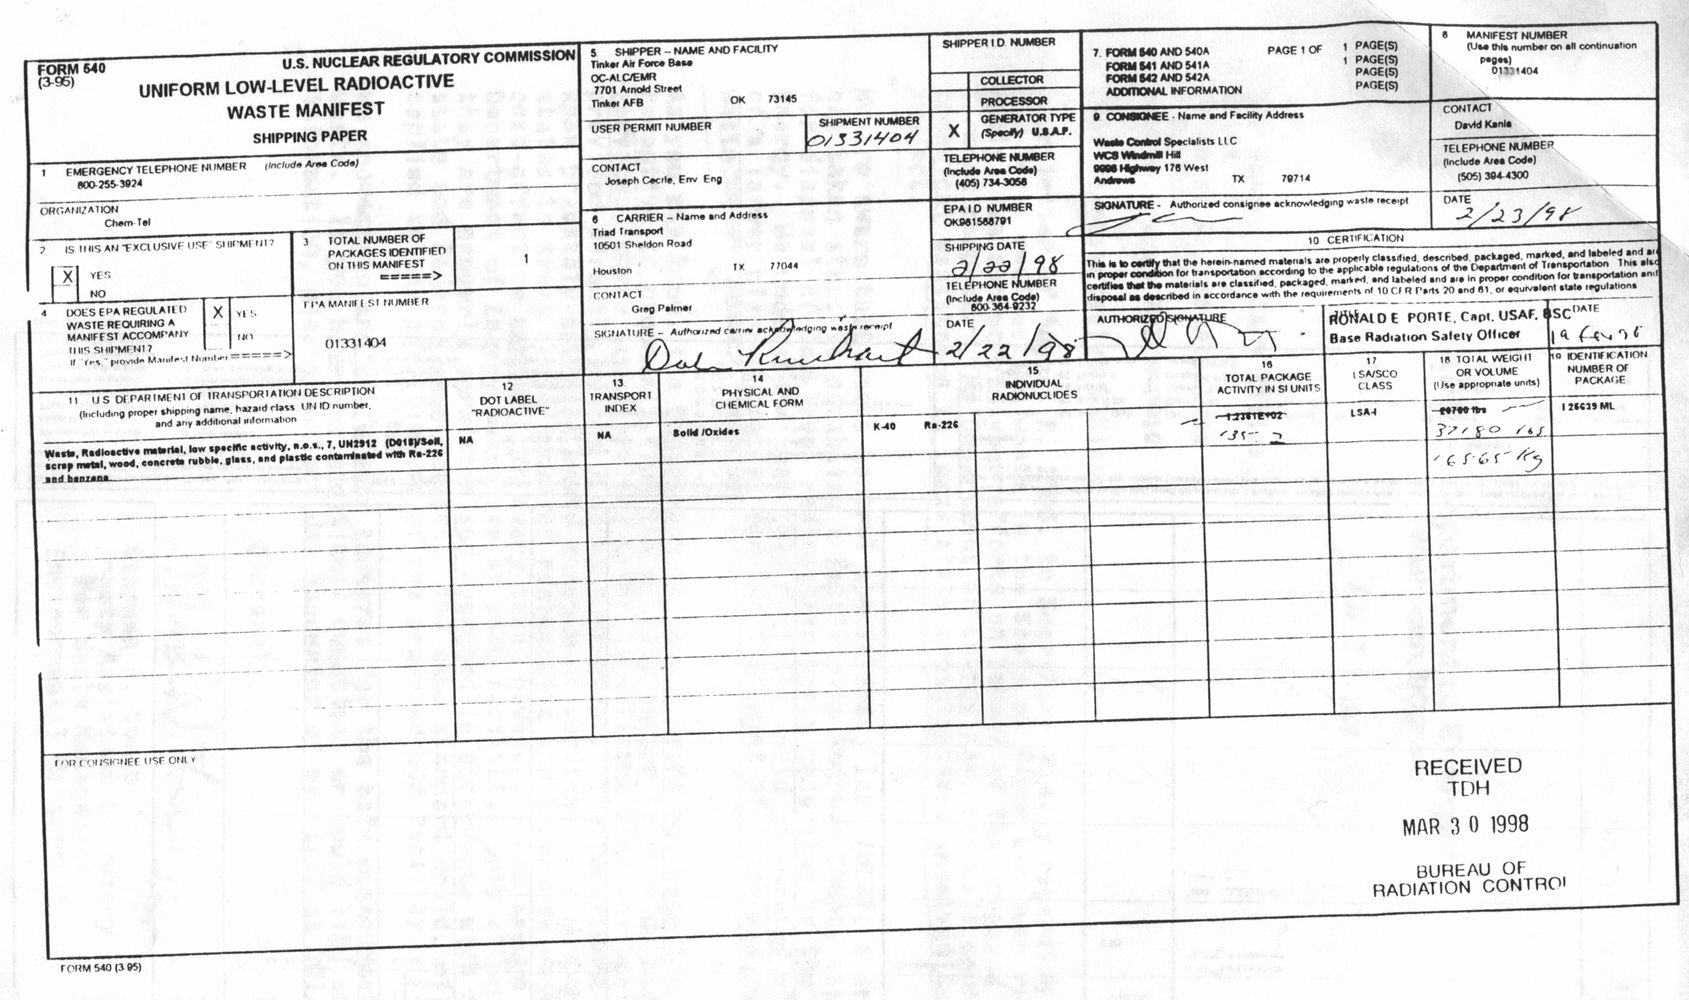 FORM 540
(3-95)
U.S. NUCLEAR REGULATORY COMMISSION
UNIFORM LOW-LEVEL RADIOACTIVE
WASTE MANIFEST
SHIPPING PAPER
1 EMERGENCY TELEPHONE NUMBER (Include Area Code)
800-255-3924
ORGANIZATION
Chem-Tel
2 IS THIS AN "EXCLUSIVE USE" SHIPMENT?
X YES
NO
3 TOTAL NUMBER OF
PACKAGES IDENTIFIED
ON THIS MANIFEST
=====>
1
4 DOES EPA REGULATED
WASTE REQUIRING A
MANIFEST ACCOMPANY
THIS SHIPMENT?
If "Yes," provide Manifest Number =====>
X YES
NO
EPA MANIFEST NUMBER
01331404
5 SHIPPER -- NAME AND FACILITY
Tinker Air Force Base
OC-ALC/EMR
7701 Arnold Street
Tinker AFB OK 73145
USER PERMIT NUMBER
SHIPMENT NUMBER
01331404
CONTACT
Joseph Cecrle, Env Eng
6 CARRIER -- Name and Address
Triad Transport
10501 Sheldon Road
Houston TX 77044
CONTACT
Greg Palmer
SIGNATURE -- Authorized carrier acknowledging waste receipt
SHIPPER I.D. NUMBER
COLLECTOR
PROCESSOR
X GENERATOR TYPE
(Specify) U.S.A.F.
TELEPHONE NUMBER
(Include Area Code)
(405) 734-3058
EPA I.D NUMBER
OK981588791
SHIPPING DATE
2/22/98
TELEPHONE NUMBER
(Include Area Code)
800-364-9232
DATE
2/22/98
7. FORM 540 AND 540A PAGE 1 OF 1 PAGE(S)
FORM 541 AND 541A 1 PAGE(S)
FORM 542 AND 542A PAGE(S)
ADDITIONAL INFORMATION PAGE(S)
8 MANIFEST NUMBER
(Use this number on all continuation
pages)
01331404
9. CONSIGNEE - Name and Facility Address
Waste Control Specialists LLC
WCS Windmill Hill
9998 Highway 176 West
Andrews TX 79714
CONTACT
David Kania
TELEPHONE NUMBER
(Include Area Code)
(505) 394-4300
SIGNATURE - Authorized consignee acknowledging waste receipt
DATE
2/23/98
10 CERTIFICATION
This is to certify that the herein-named materials are properly classified, described, packaged, marked, and labeled and are
in proper condition for transportation according to the applicable regulations of the Department of Transportation This also
certifies that the materials are classified, packaged, marked, and labeled and are in proper condition for transportation and
disposal as described in accordance with the requirements of 10 CFR Parts 20 and 61, or equivalent state regulations
AUTHORIZED SIGNATURE
RONALD E PORTE, Capt, USAF, BSC
Base Radiation Safety Officer
DATE
11 U S DEPARTMENT OF TRANSPORTATION DESCRIPTION
(Including proper shipping name, hazard class, UN ID number,
and any additional information
12
DOT LABEL
"RADIOACTIVE"
13
TRANSPORT
INDEX
14
PHYSICAL AND
CHEMICAL FORM
15
INDIVIDUAL
RADIONUCLIDES
16
TOTAL PACKAGE
ACTIVITY IN SI UNITS
17
LSA/SCO
CLASS
18 TOTAL WEIGHT
OR VOLUME
(Use appropriate units)
19 IDENTIFICATION
NUMBER OF
PACKAGE
Waste, Radioactive material, low specific activity, n.o.s., 7, UN2912 (D018)/Soil,
scrap metal, wood, concrete rubble, glass, and plastic contaminated with Ra-226
and benzene
NA
NA
Solid /Oxides
K-40 Ra-226
1.2361E+02
LSA-I
26760 lbs
37180 lbs
126639 ML
FOR CONSIGNEE USE ONLY
RECEIVED
TDH
MAR 30 1998
BUREAU OF
RADIATION CONTROL
FORM 540 (3 95)